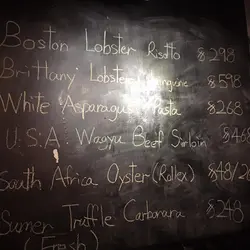 Boston Lobster Risotto $298
Brittany Lobster Linguine $598
White Asparagus Pasta $268
U.S.A. Wagyu Beef Sirloin $468
South Africa Oyster (Rollex) $48/
Sumer Truffle Carbonara $248
(Fresh)